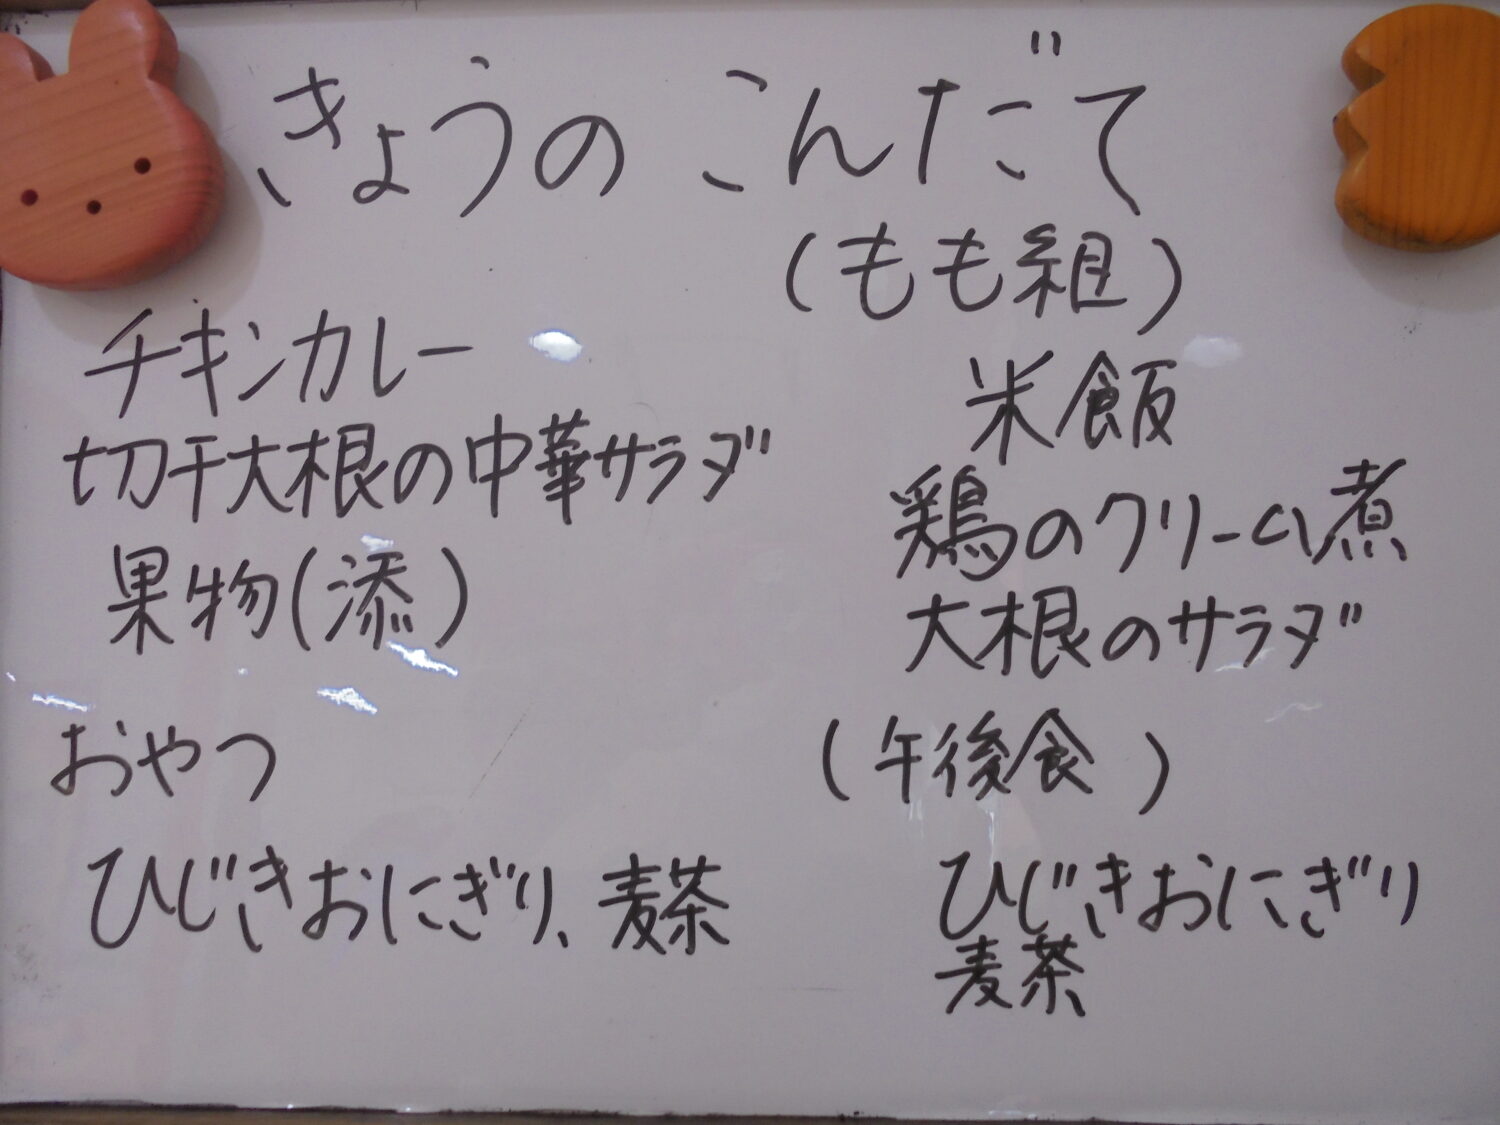 きょうの こんだて
チキンカレー
切干大根の中華サラダ
果物(添)
おやつ
ひじきおにぎり、麦茶
(もも組)
米飯
鶏のクリーム煮
大根のサラダ
(午後食 )
ひじきおにぎり
麦茶